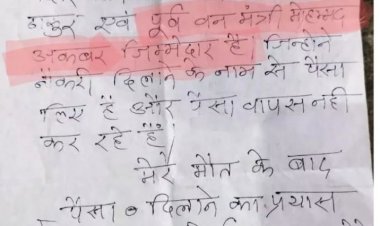 ठाकुर एवं पूर्व वन मंत्री मोहम्मद
अकबर जिम्मेदार है। जिन्होने
नौकरी दिलाने के नाम से पैसा
लिए है और पैसा वापस नही
कर रहे है।
मेरे मौत के बाद
पैसा दिलाने का प्रयास